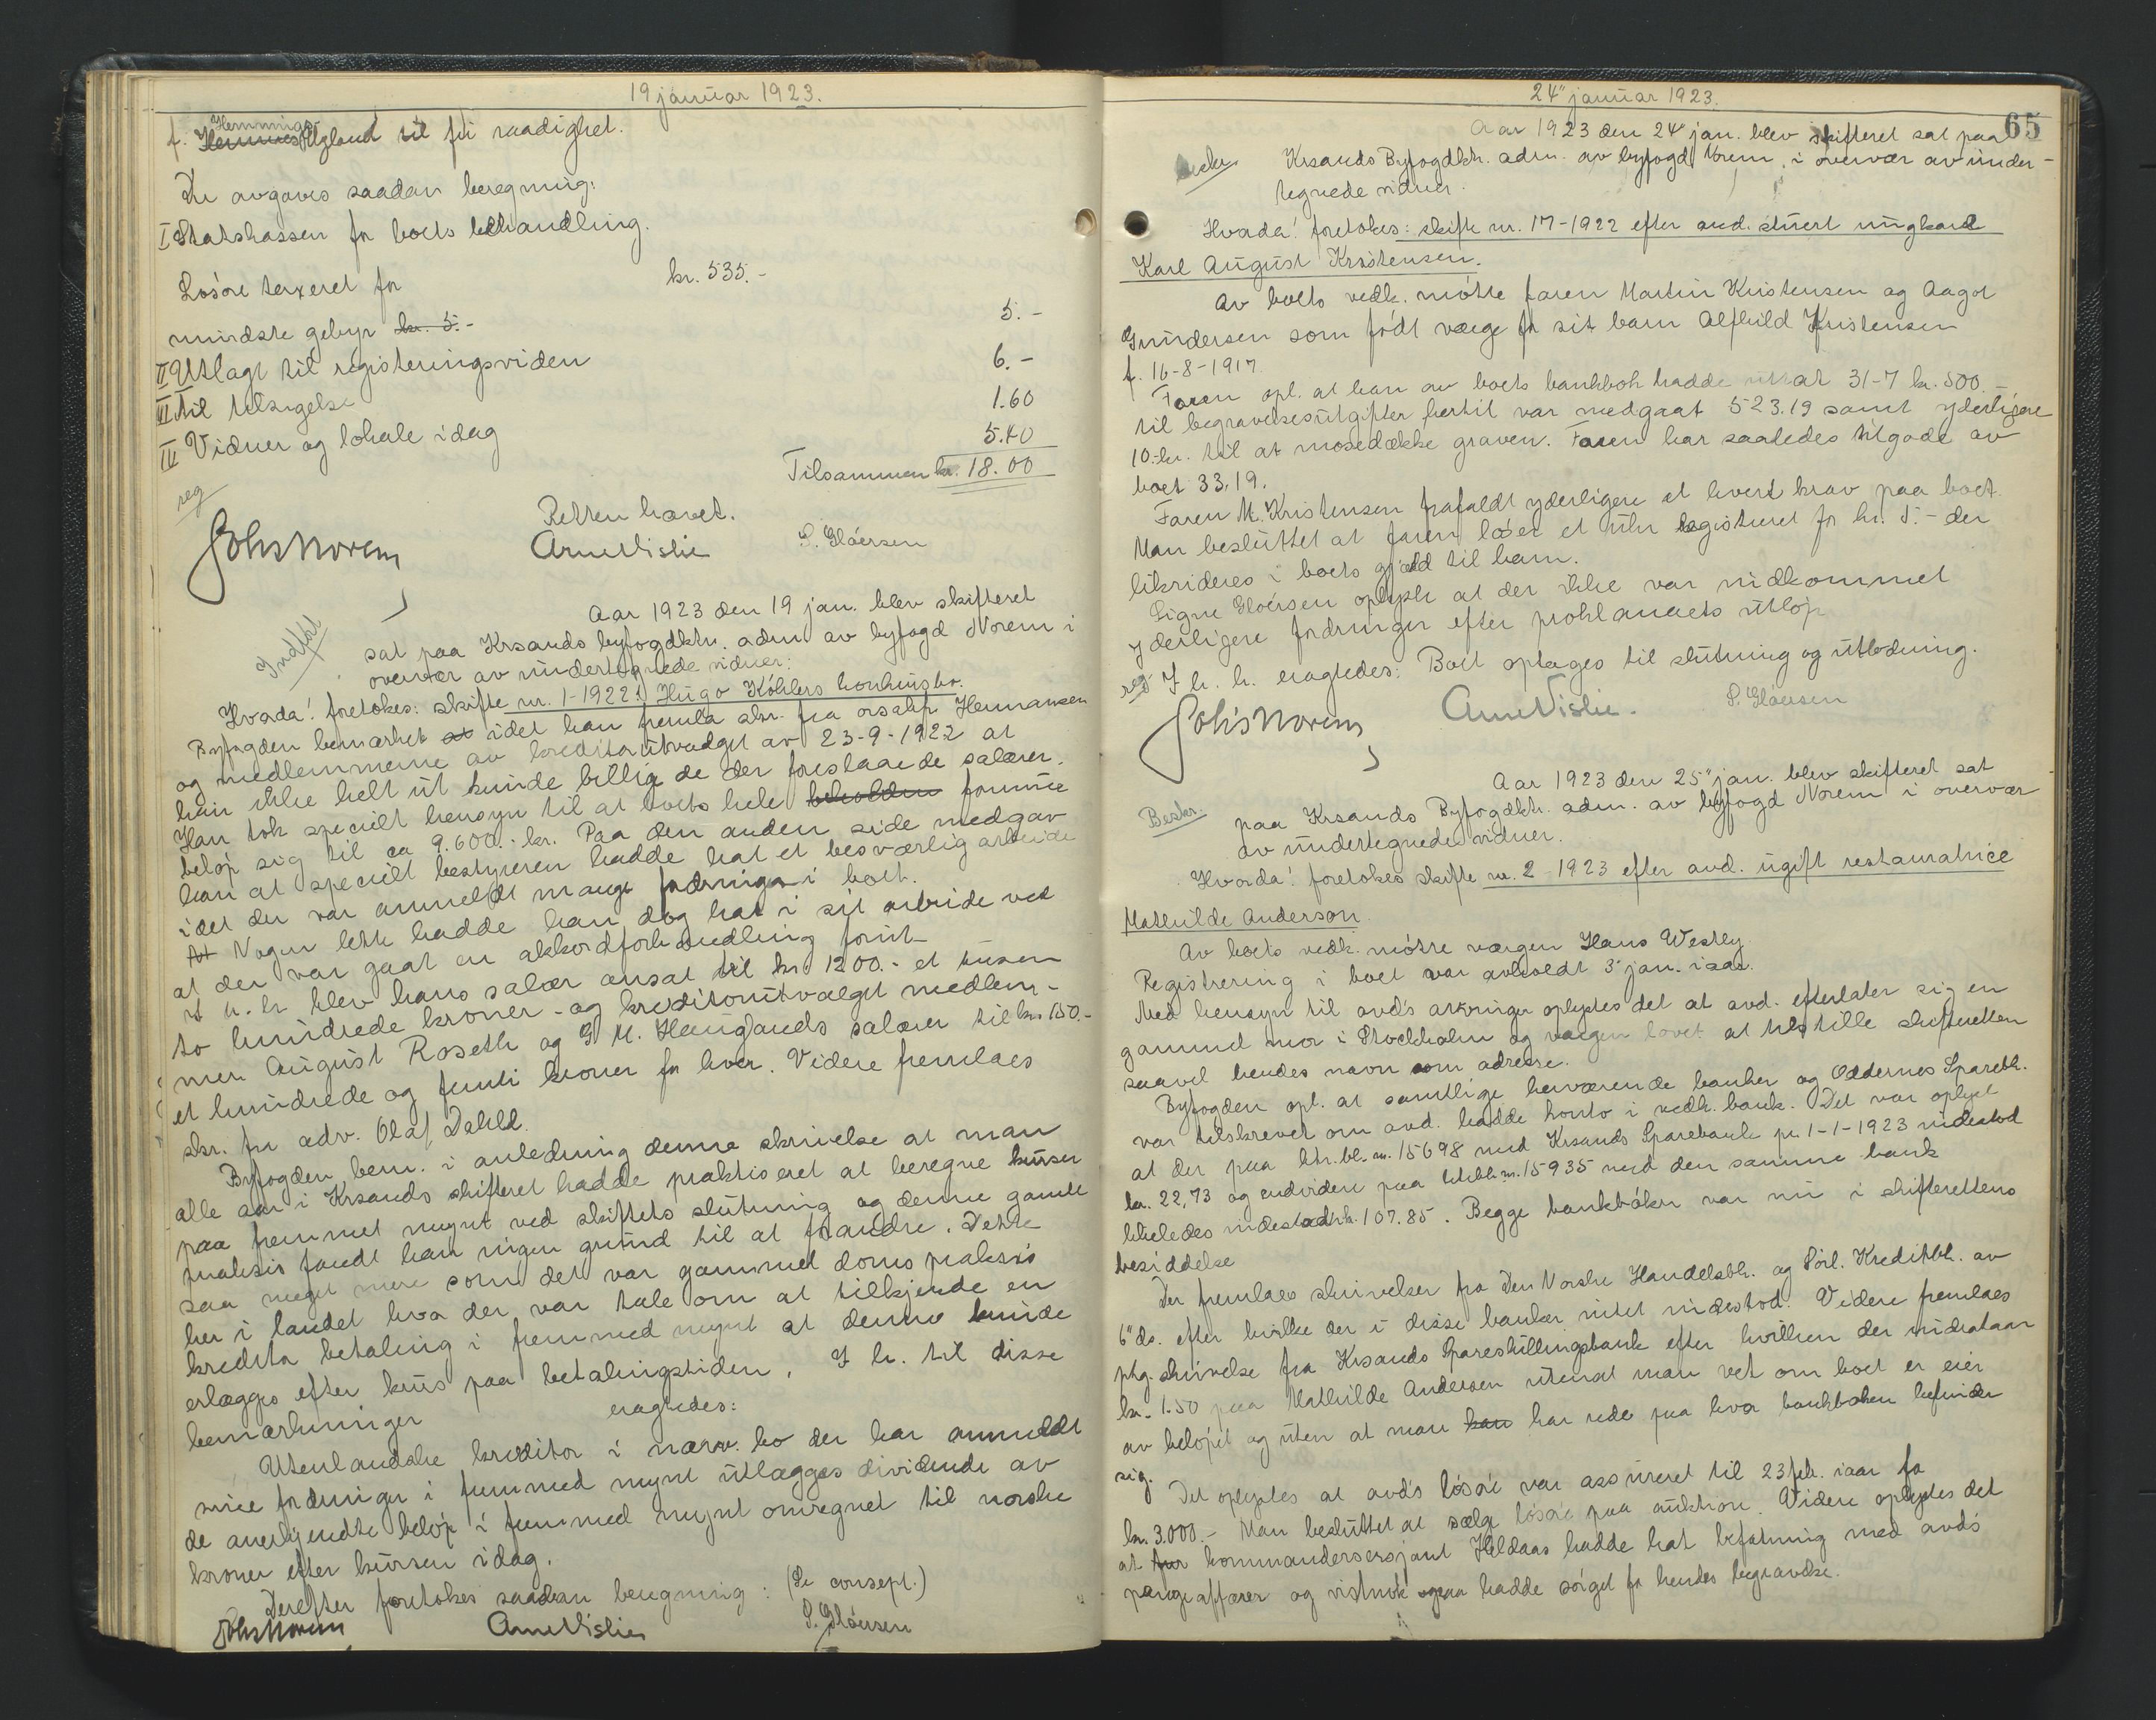 19 januar 1923.
Hemmings-
f. Ugland til fri raadighet.
De avgaves saadan beregning:
I Statskassen for boets behandling.
Løsøre taxeret for kr. 535.-
mindste gebyr kr. 5.- 5.-
II Utlagt til registeringsviden 6.-
III til tilsigelse 1.60
III Vidner og lokale idag 5.40
Tilsammen kr. 18.00
reg
Retten hævet.
Johs Norem Arne Vislie S. Gløersen
Aar 1923 den 19 jan. blev skifteret
Indført
sat paa Krsands byfogdktr. adm av byfogd Norem i
overvær av undertegnede vidner:
Hvada! foretokes: skifte nr. 1-1922 i Hugo Köhlers konkursbo.
Byfogden bemærket at idet han fremla skr. fra orsakf Hermansen
og medlemmerne av kreditorutvalget av 23-9-1922 at
han ikke helt ut kunde billig de der foreslaaede salærer.
Han tok specielt hensyn til at boets hele beholdne formue
beløp sig til ca 9.600.- kr. Paa den anden side medgav
han at specielt bestyreren hadde hat et besværlig arbeide
idet der var anmeldt mange fordringer i boet.
Nogen lette hadde han dog hat i sit arbeide ved
at der var gaat en akkordforhandling forut
I h. h. blev hans salær ansat til kr. 1200.- et tusen
to hundrede kroner - og kreditorutvalget medlem-
mer August Roseth og G M. Hauglands salærer til kr. 150.-
et hundrede og femti kroner for hver. Videre fremlaes
skr. fra adv. Olaf Dahll.
Byfogden bem. i anledning denne skrivelse at man
alle aar i Krsands skifteret hadde praktiseret at beregne kursen
paa fremmet mynt ved skiftets slutning og denne gamle
praksis fandt han ingen grund til at forandre. Dette
saa meget mere som det var gammel doms praksis
her i landet hvor der var tale om at tilkjende en
kreditor betaling i fremmed mynt at denne kunde
erlægges efter kurs paa betalingstiden. I h. til disse
bemærkninger eragtedes:
Utenlandske kreditor i nærv. bo der har anmeldt
sine fordringer i fremmed mynt utlægges dividende av
de anerkjendte beløp i fremmed mynt omregnet til norske
kroner efter kursen idag.
Derefter foretokes saadan beregning: (Se consept.)
Johs Norem Arne Vislie S. Gløersen
24" januar 1923.
65
Aar 1923 den 24" jan. blev skifteret sat paa
Krsands Byfogdktr. adm. av byfogd Norem, i overvær av under-
tegnede vidner.
Hvada! foretokes: skifte nr. 17-1922 efter avd. stuert ungkarl
Karl August Kristensen.
Av boets vedk. møtte faren Martin Kristensen og Aagot
Gundersen som født værge for sit barn Alfhild Kristensen
f. 16-8-1917
Faren opl. at han av boets bankbok hadde uttat 31-7 kr. 500.-
til begravelsesutgifter hertil var medgaat 523.19 samt yderligere
10.- kr. til at mosedække graven. Faren har saaledes tilgode av
boet 33.19.
Faren M. Kristensen frafaldt yderligere et hvert krav paa boet.
Man besluttet at faren løser et uhr registreret for kr. 5.- der
likvideres i boets gjæld til ham.
Signe Gloërsen oplyste at der ikke var indkommet
yderligere fordringer efter proklamaets utløp
reg I h. h. eragtedes: Boet optages til slutning og utlodning.
Johs Norem Arne Vislie. S. Gløersen
Aar 1923 den 25" jan. blev skifteret sat
Beskr.
paa Krsands Byfogdktr. adm. av byfogd Norem i overvær
av undertegnede vidner.
Hvada! foretokes skifte nr. 2 - 1923 efter avd. ugift restauratrice
Mathilde Anderson.
Av boets vedk. møtte værgen Hans Westly
Registrering i boet var avholdt 3' jan. iaar.
Med hensyn til avd's arvinger oplystes det at avd. efterlater sig en
gammel mor i Stockholm og værgen lovet at tilstille skifteretten
saavel hendes navn som adresse.
Byfogden opl. at samtlige herværende banker og Oddernes Sparebk.
var tilskrevet om avd. hadde konto i vedk. bank. Det var oplyst
at der paa ktr.bl. nr. 15698 med Krsands Sparebank pr. 1-1-1923 indestod
kr. 22,73 og endvidere paa nr. 15935 med den samme bank
likeledes indestod kr. 107.85. Begge bankbøker var nu i skifterettens
besiddelse
Der fremlaes skrivelser fra Den Norske Handelsbk. og Sørl. Kreditbk. av
6" ds. efter hvilke der i disse banker intet indestod. Videre fremlaes
ptg. skrivelse fra Krsands Spareskillingsbank efter hvilken der indestaar
kr. 1.50 paa Mathilde Andersen uten at man vet om boet er eier
av beløpet og uten at man kan har rede paa hvor bankboken befinder
sig.
Det oplystes at avd's løsøre var assureret til 23 feb. iaar for
kr. 3.000.- Man besluttet at sælge løsøre paa auktion. Videre oplystes det
at kommandersersjant Hildaas hadde hat befatning med avd's
pengeaffærer og vistnok ogsaa hadde sørget for hendes begravelse.